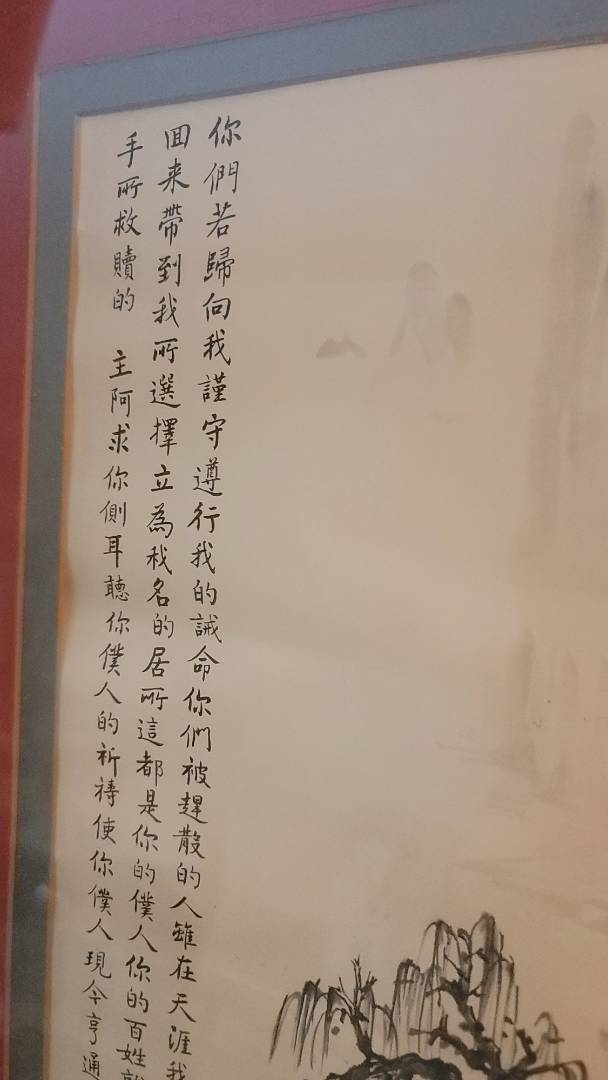 你們若歸向我謹守遵行我的誡命你們被趕散的人雖在天涯我
回来帶到我所選擇立為我名的居所這都是你的僕人你的百姓
手所救贖的 主阿求你側耳聽你僕人的祈禱使你僕人現今亨通